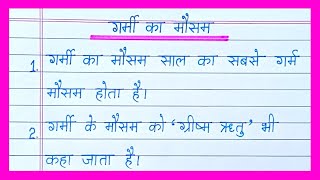 गर्मी का मौसम
1. गर्मी का मौसम साल का सबसे गर्म
मौसम होता है।
2. गर्मी के मौसम को 'ग्रीष्म ऋतु' भी
कहा जाता है।